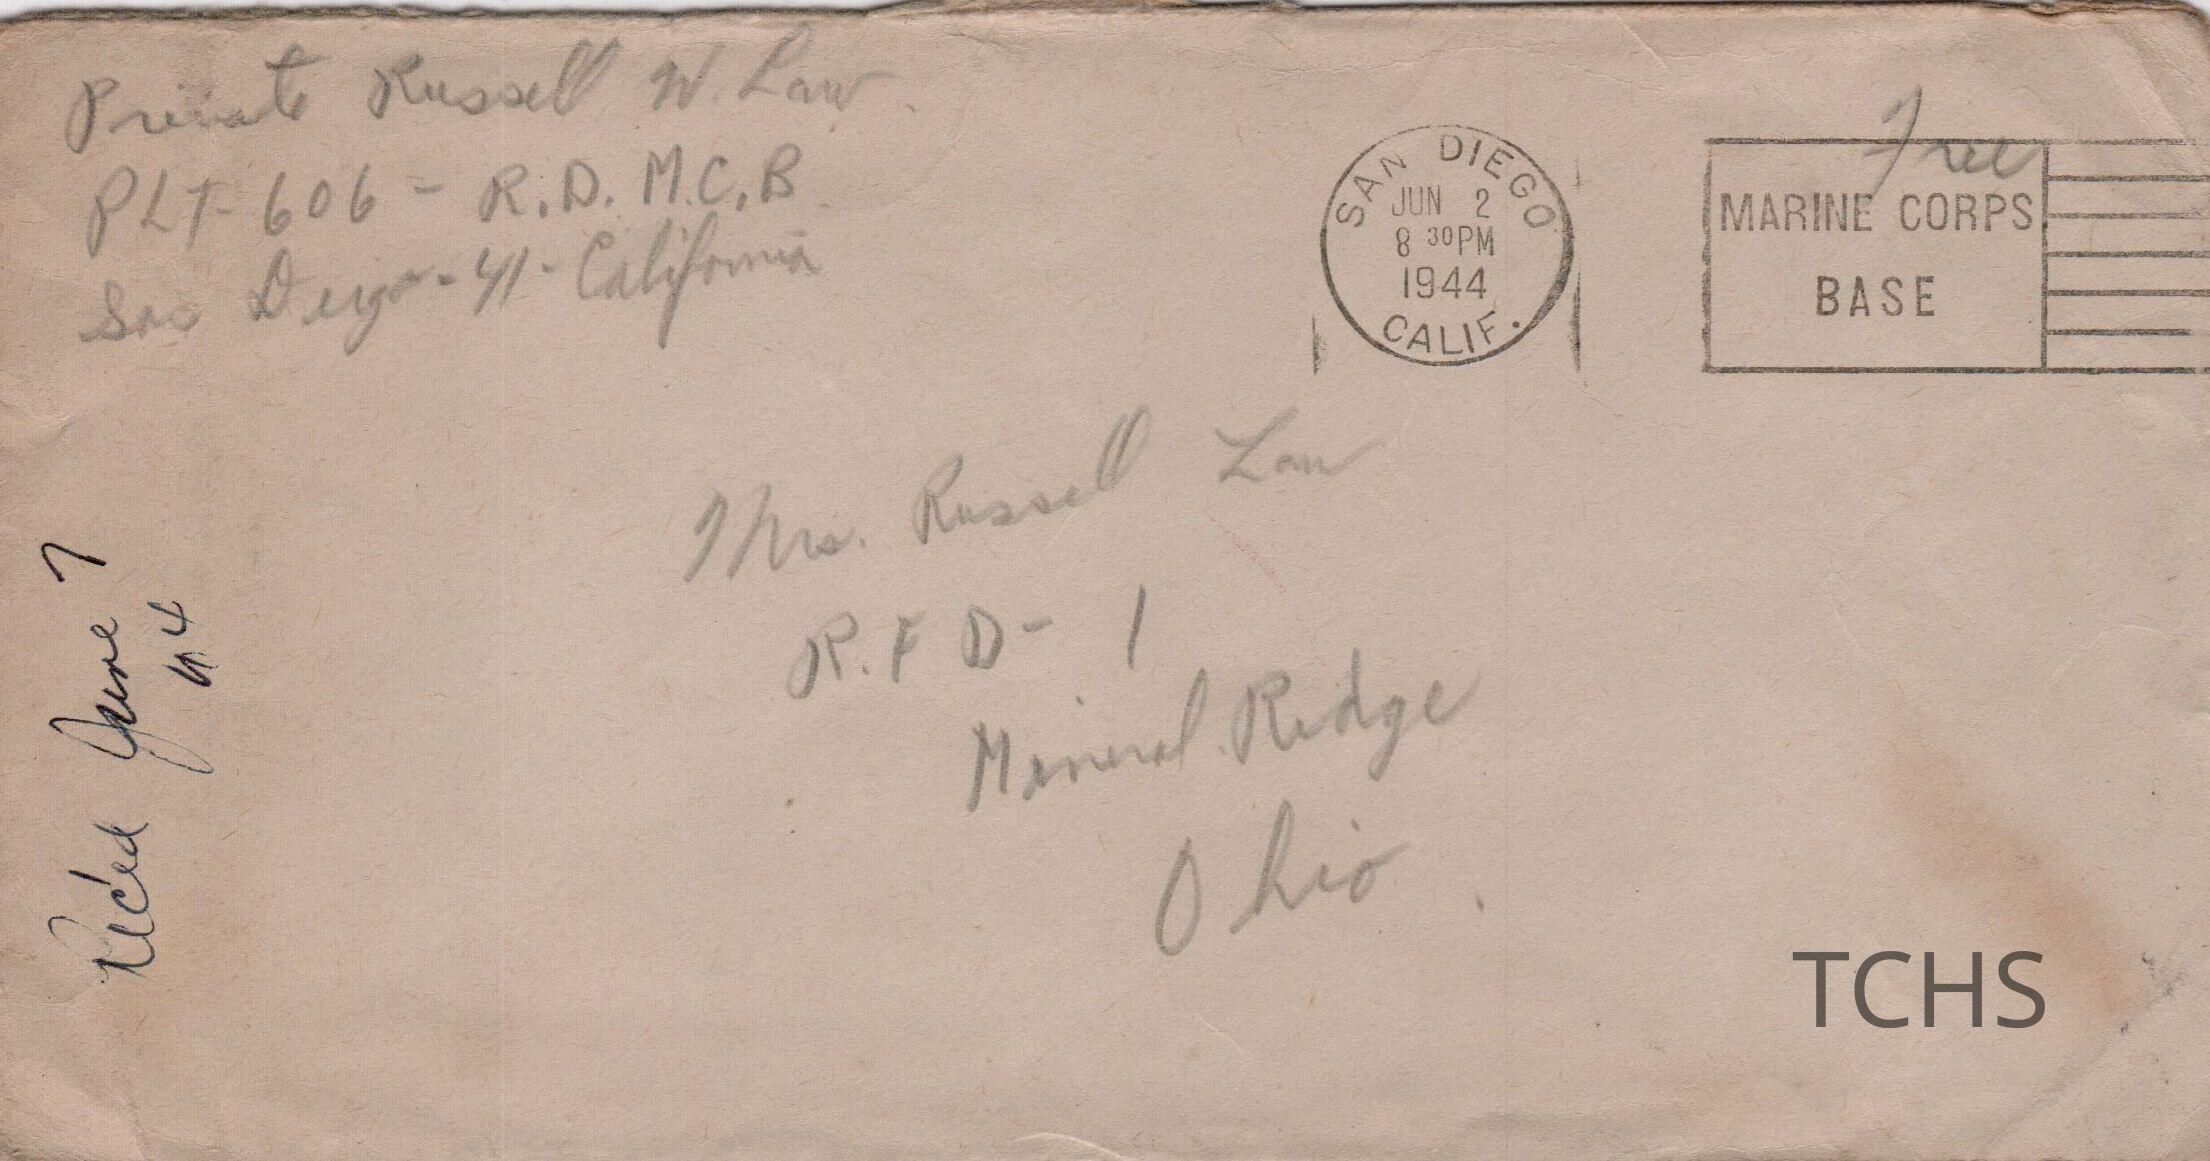 Private Russell W. Law.
PLT-606 - R.D. M.C.B.
San Deigo - 41 - California
Free
SAN DIEGO
JUN 2
8 30 PM
1944
CALIF.
MARINE CORPS
BASE
Mrs. Russell Law
R.F D - 1
Mineral Ridge
Ohio
Rec'ed June 7
44
TCHS